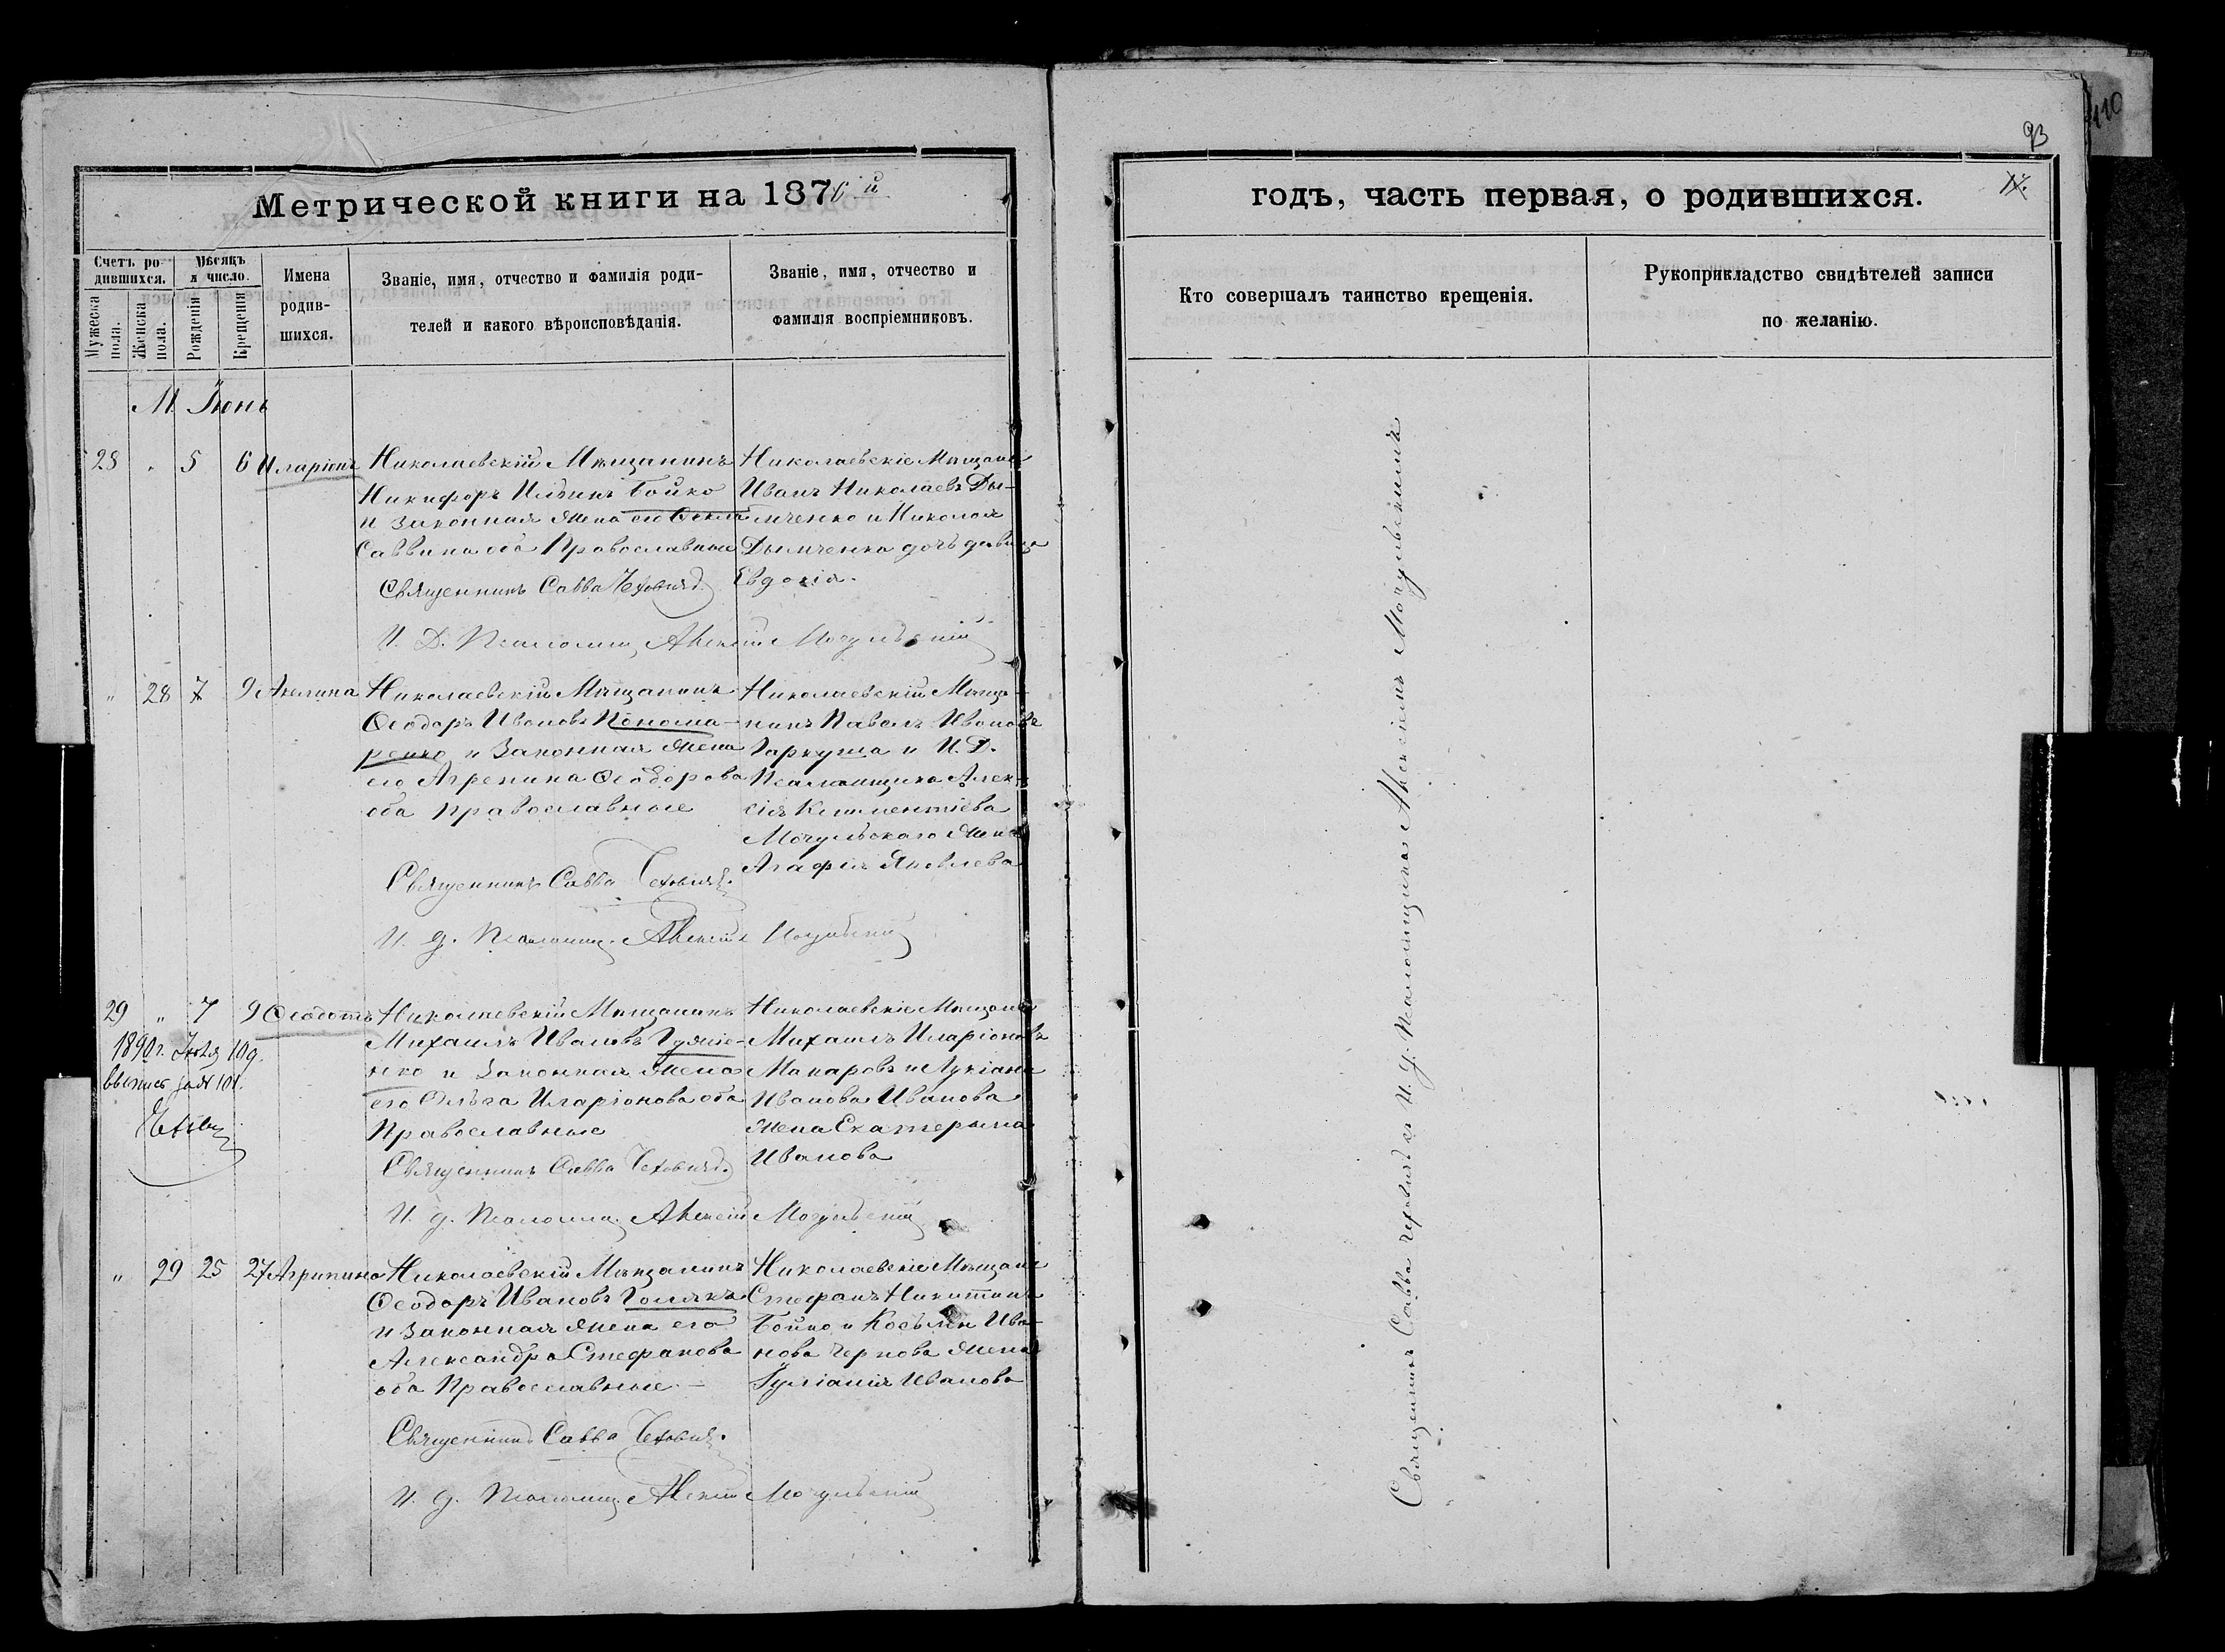 93
110
Метрической книги на 1876й
годъ, часть первая, о родившихся.
Счетъ родившихся.
Мѣсяцъ и число.
Имена родившихся.
Званіе, имя, отчество и фамилія родителей и какого вѣроисповѣданія.
Званіе, имя, отчество и фамилія воспріемниковъ.
Кто совершалъ таинство крещенія.
Рукоприкладство свидѣтелей записи по желанію.
Мужеска пола.
Женска пола.
Рожденія
Крещенія
М. Іюнь
28 " 5 6 Иларіонъ
Николаевскій Мѣщанинъ
Никифоръ Ильинъ Бойко
и законная жена его Ѳекла
Саввина оба Православные
Николаевскіе Мѣщане
Иванъ Николаевъ Ды-
мченко и Николая
Дымченка дочь девица
Евдокія.
Священникъ Савва Чеховичъ
И. Д. Псаломщ. Алексій Мочульскій
" 28 7 9 Акилина
Николаевскій Мѣщанинъ
Ѳеодоръ Ивановъ Понома-
ренко и Законная жена
его Агрепина Ѳеодорова
оба православные
Николаевскій Мѣща-
нинъ Павелъ Ивановъ
Гаркуша и И. Д.
Псаломщика Алек-
сія Климентіева
Мочульскаго жена
Агафія Яковлева
Священникъ Савва Чеховичъ.
И. д. Псаломщ. Алексій Мочульскій
29 " 7 9 Ѳеодотъ
1890 г. Іюля 10 д.
выпись за № 101.
Николаевскій Мѣщанинъ
Михаилъ Ивановъ Гуліе-
нко и Законная жена
его Ольга Иларіонова оба
Православные
Николаевскіе Мѣщане
Михаилъ Иларіоновъ
Макаровъ и Лукіана
Иванова Иванова
жена Екатерына
Иванова
Священникъ Савва Чеховичъ
И. д. Псаломщ. Алексій Мочульскій
" 29 25 27 Агрипина
Николаевскій Мѣщанинъ
Ѳеодоръ Ивановъ Голякъ
и Законная жена его
Александра Стефанова
оба Православные. —
Николаевскіе Мѣщане
Стефанъ Никитинъ
Бойко и Косьмы Ива-
нова Чернова жена
Іуліанія Иванова
Священникъ Савва Чеховичъ.
И. д. Псаломщ. Алексій Мочульскій
Священникъ Савва Чеховичъ съ И. д. Псаломщика Алексіемъ Мочульскимъ